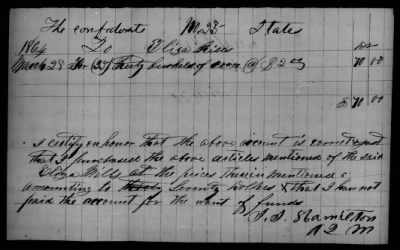 The confederate No. 23 States
1864 To Eliza Mills
March 28 For (35) thirty bushels of corn @ $2 00 70 00
$ 70 00
I certify on honor that the above account is correct & just
that I purchased the above articles mentioned of the said
Eliza Mills at the prices therein mentioned &
amounting to thirty Seventy Dollars & that I have not
paid the account for the want of funds
Hamilton
A Q M